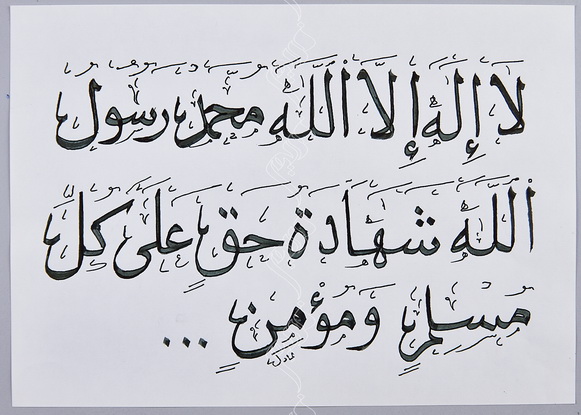 لَا إِلَٰهَ إِلَّا اللَّهُ مُحَمَّدٌ رَسُولُ
اللَّهِ شَهَادَةُ حَقٍّ عَلَى كُلِّ
مُسْلِمٍ وَمُؤْمِنٍ ...